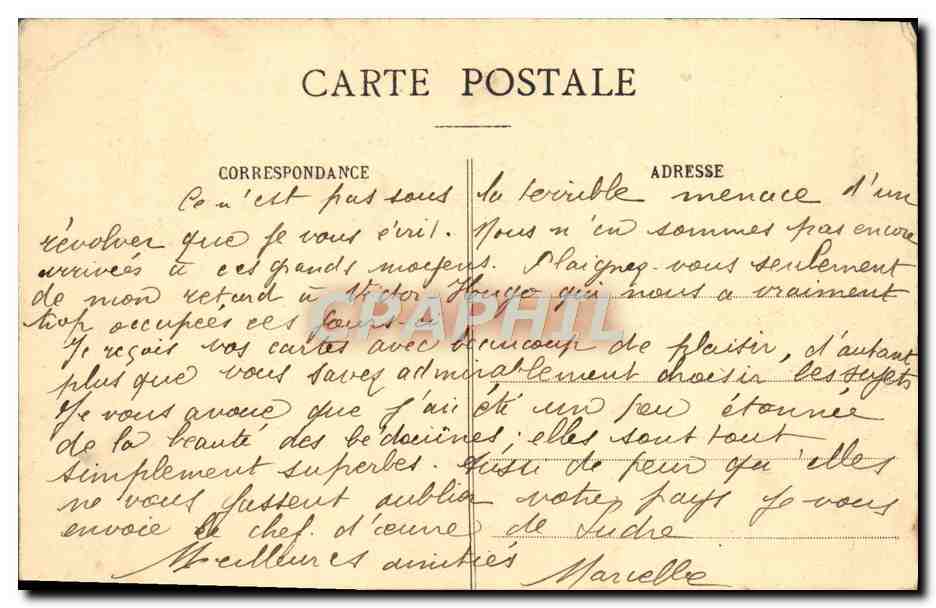 CARTE POSTALE
CORRESPONDANCE
ADRESSE
Ce n'est pas sous la terrible menace d'un
révolver que je vous écrit. Nous n'en sommes pas encore
arrivées à ces grands moyens. Plaignez-vous seulement
de mon retard à Victor Hougo qui nous a vraiment
trop occupées ces jours-ci
Je reçois vos cartes avec beaucoup de plaisir, d'autant
plus que vous savez admirablement choisir les sujets
Je vous avoue que j'ai été un peu étonnée
de la beauté des bédouines; elles sont tout
simplement superbes. Aussi de peur qu'elles
ne vous fassent oublier votre pays je vous
envoie le chef. d'œuvre de
Meilleures amitiés
Marcelle
CPAPHIL